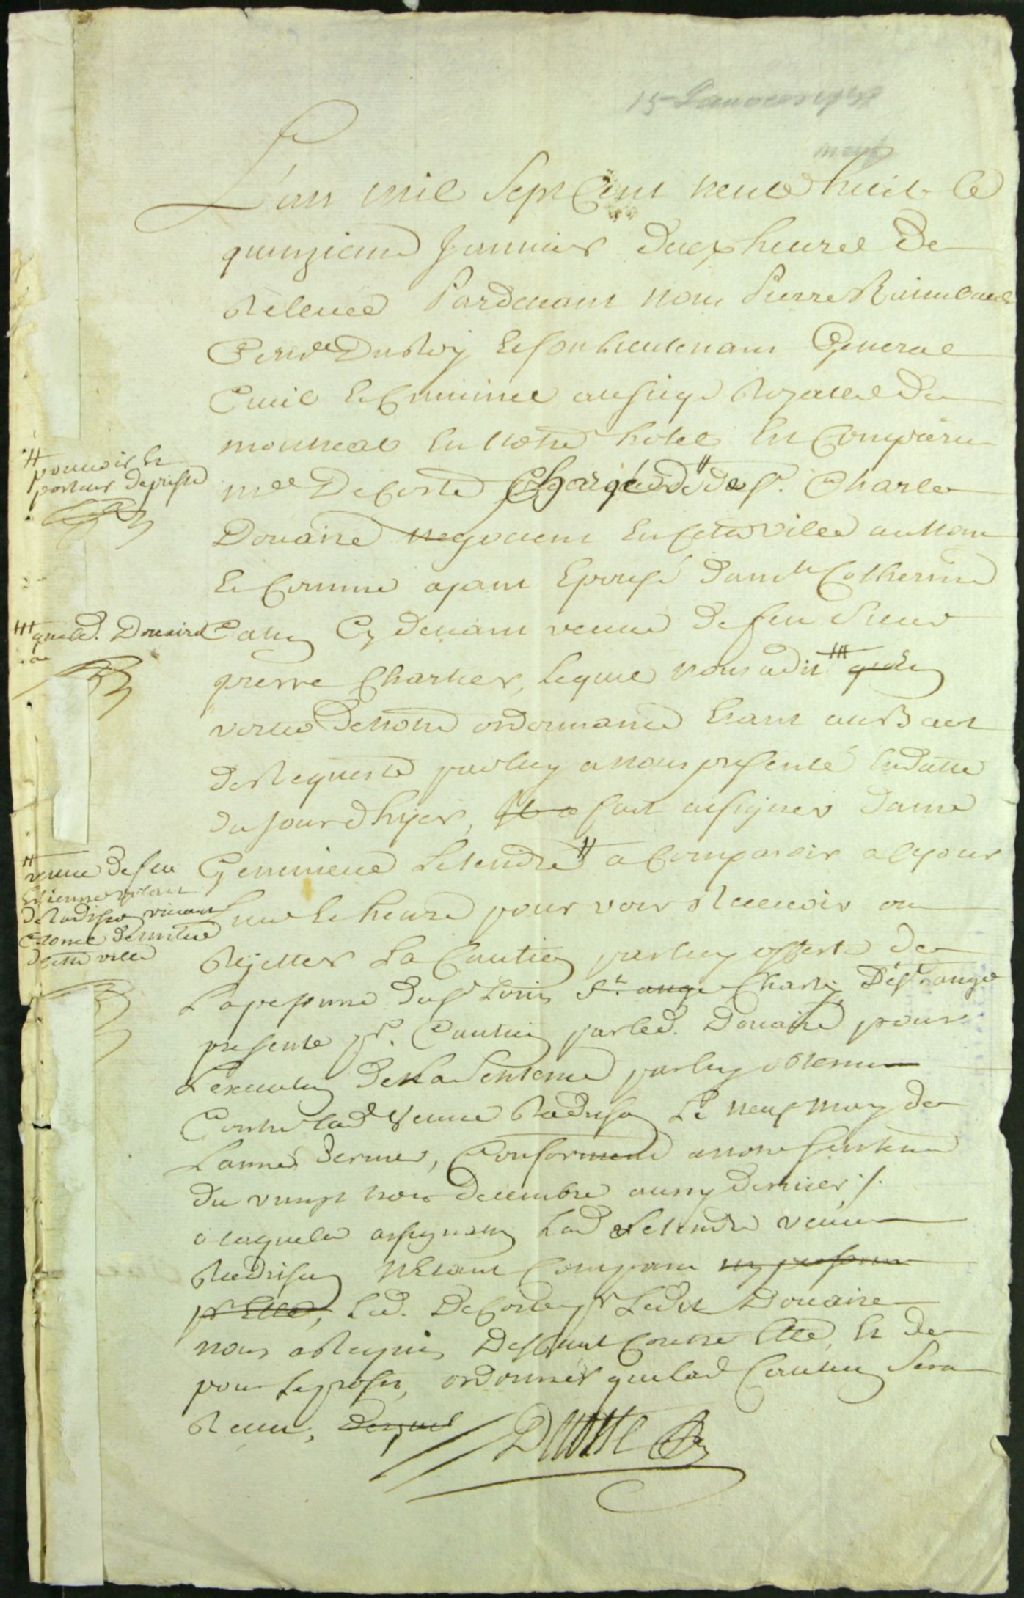 15 Janvier 17
L'an mil sept Cent trente huit le
quinzieme Janvier deux heures de
Relevée Pardevant nous Pierre Raimbault
Coner du Roy et son lieutenant General
Civil et Criminel au siege Royalle de
montreal en notre hotel Est Comparu
me Decoste Chargé de # de sr. Charle
Douaire negotiant En Cette ville au nom
et Comme ayant Epousé dame Catherine
Cy devant veuve de feu sieur
pierre Chartier, Lequel nous a dit ### qu'en
vertu de notre ordonnance Etant au Bas
de Requeste par luy a nous presenté En datte
du jour d'hyer, il a fait assigner dame
Genevieve Letendre # a Comparoir a ce jour
lieu et heure pour voir Recevoir ou
Rejetter La Caution par luy offerte de
La personne du sr Louis st. ange Charly
presenté pr. Caution par led. Douaire pour
L'execution de la Sentence par luy obtenue
Contre lad Veuve Radisson Le neuf may de
L'année derniere, Conformement a notre sentence
du vingt trois decembre aussy dernier /.
a laquelle assignation Lad Letendre veuve
Radisson N'Etant Comparu ny personne
pr Elle, Led. Decoste pr Ledit Douaire
nous a Requis Deffaut Contre Elle, et de
pour le profit, ordonner que lad Caution Sera
Receue, Dequel
Decoste
# pouvoir et
porteur de pieces
### que led. Douaire
a
# veuve de feu
Etienne volant
de Radisson vivant
Colonel de milice
de cette ville